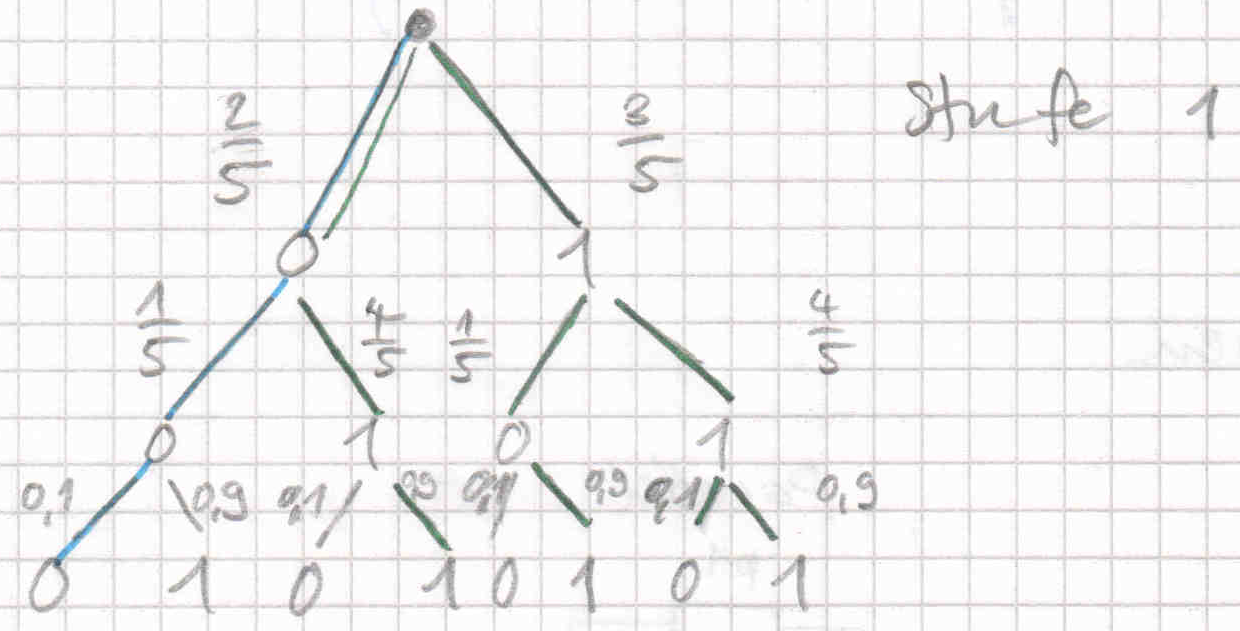 Stufe 1
2/5 3/5
0 1
1/5 4/5 1/5 4/5
0 1 0 1
0,1 0,9 0,1 0,9 0,1 0,9 0,1 0,9
0 1 0 1 0 1 0 1